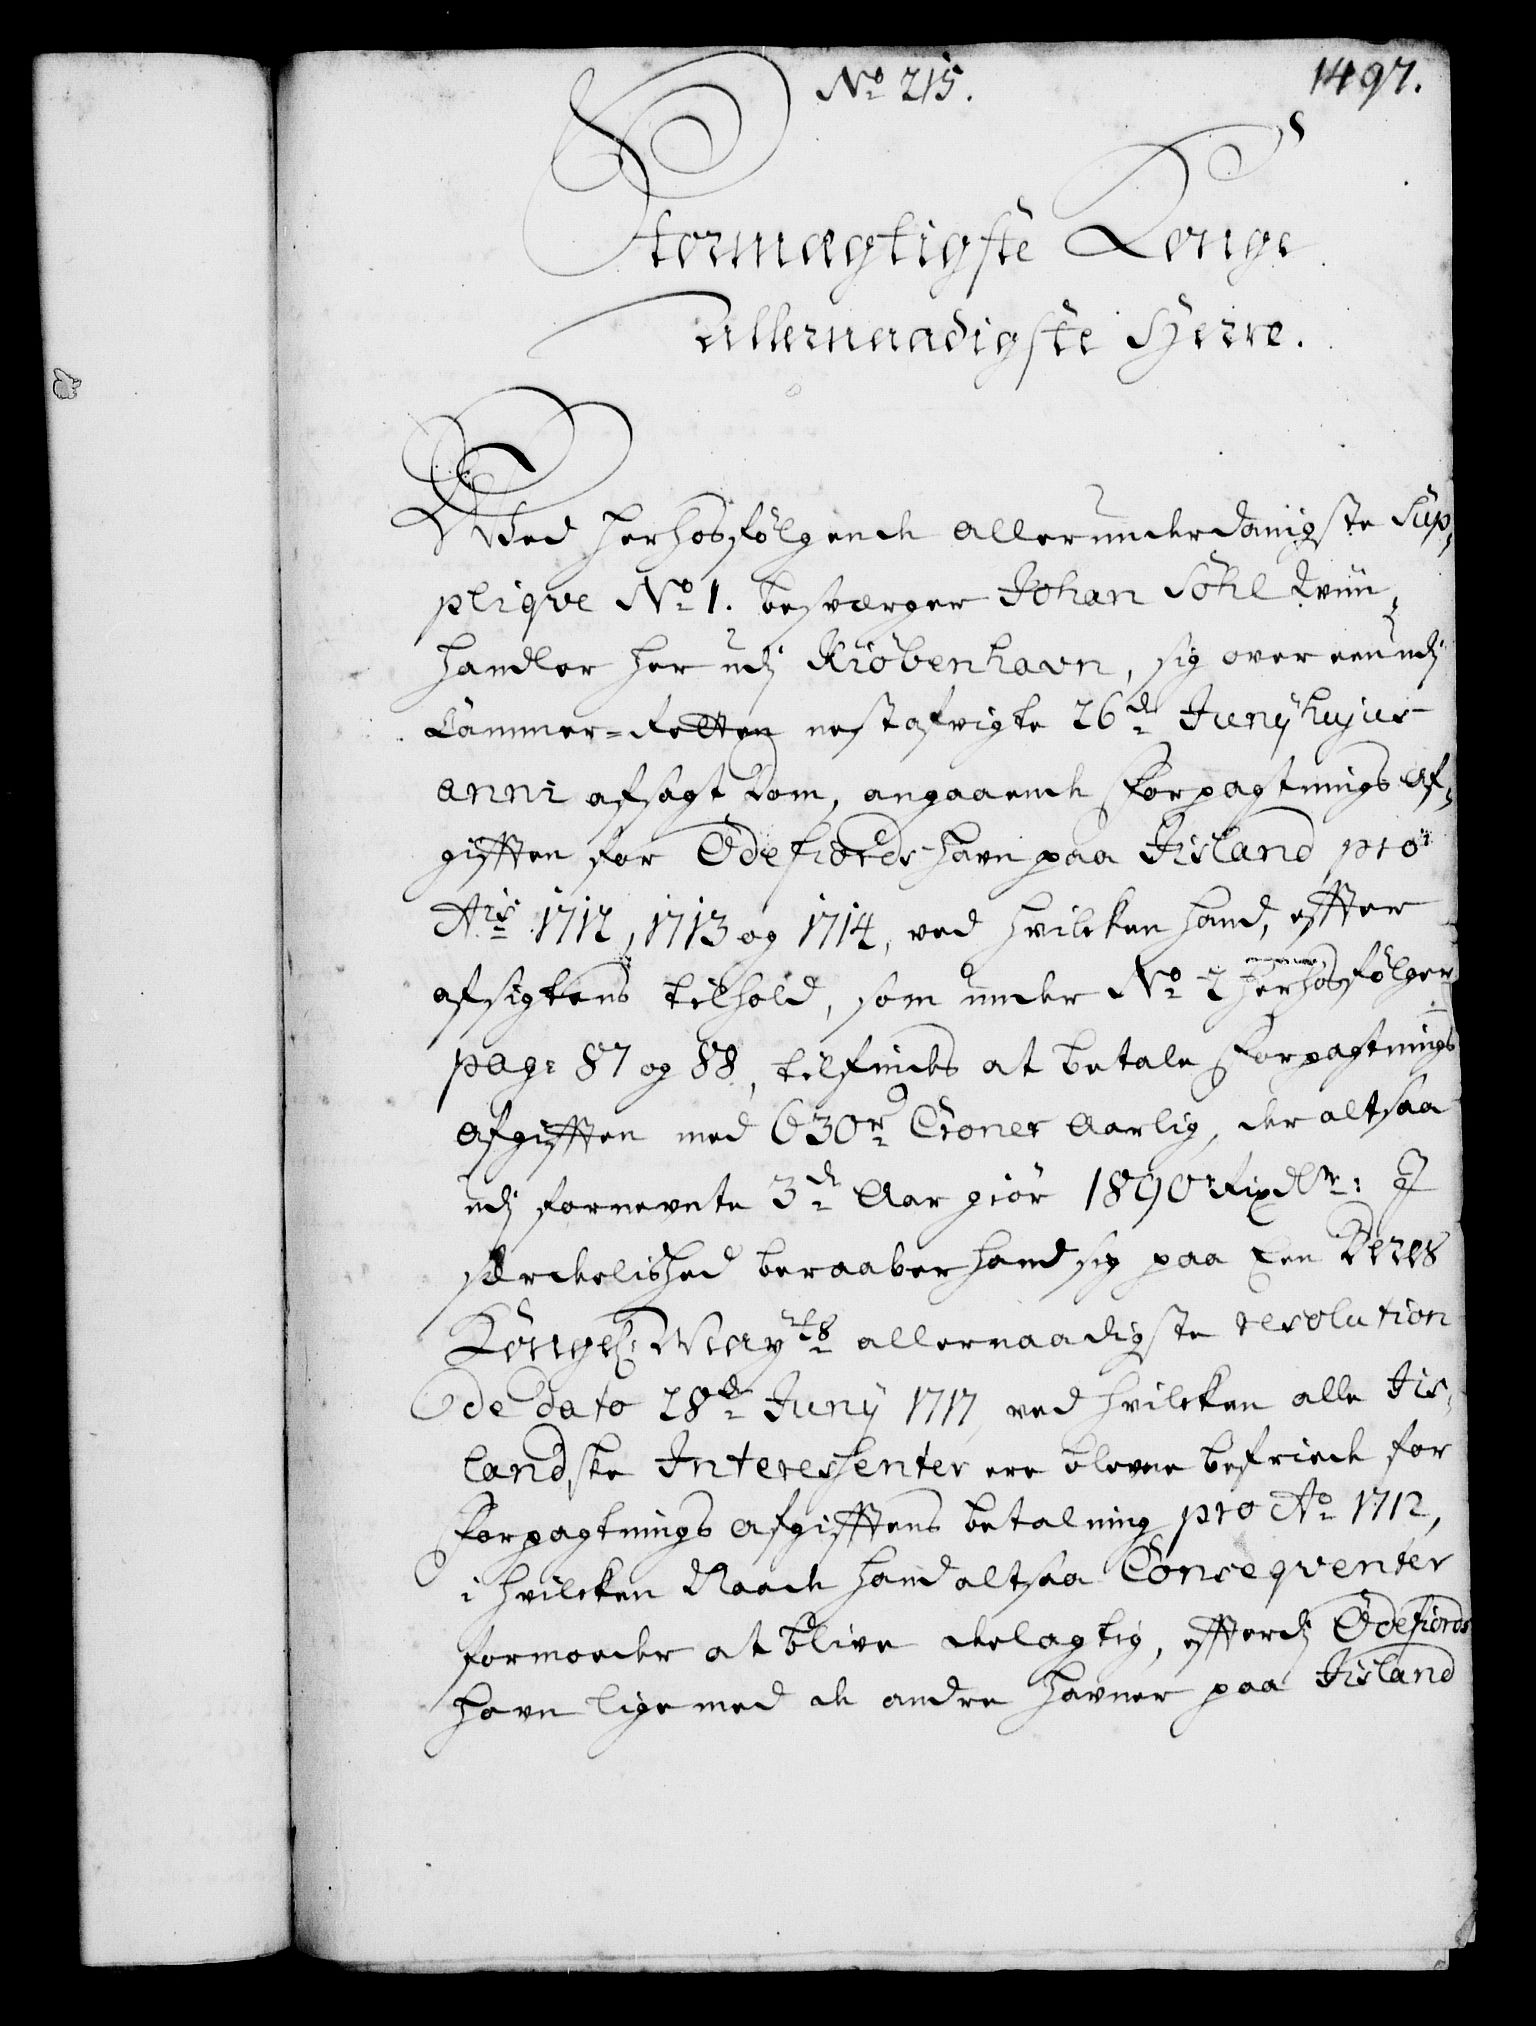 No 215.
1497.
Stormægtigste Konge
Allernaadigste Herre.
Ved herhosfölgende allerunderdanigste Sup,
plique No 1. besværger Johan Söhl
handler her udj Kiöbenhavn, sig over een udj
Cammer=Retten nestafvigte 26de Junÿ hujus
anni afsagt Dom, angaaende Forpagtnings Af,
gifften for Ödefiords Havn paa Jisland pro
Ais 1712, 1713 og 1714, ved hvilcken hand, effter
afsigtens tilhold, som under No 2 herhosfölger
pag: 87 og 88, tilfindes at betale Forpagtnings
Afgifften med 630r Croner Aarlig, der altsaa
udj fornevnte 3de Aar giör 1890 RixDlr: J
særdelished beraaber hand sig paa Een Deres
Kongel: Mayts allernaadigste resolution
de dato 28de Junÿ 1717, ved hvilcken alle Jis,
landske Interessenter ere blevne befriede for
Forpagtnings Afgifftens betalning pro Ao 1712,
i hvilcken Naade hand altsaa Conseqventer
formoder at blive delagtig, efferdj Ödefiords
Havn lige med de andre Havner paa Jisland